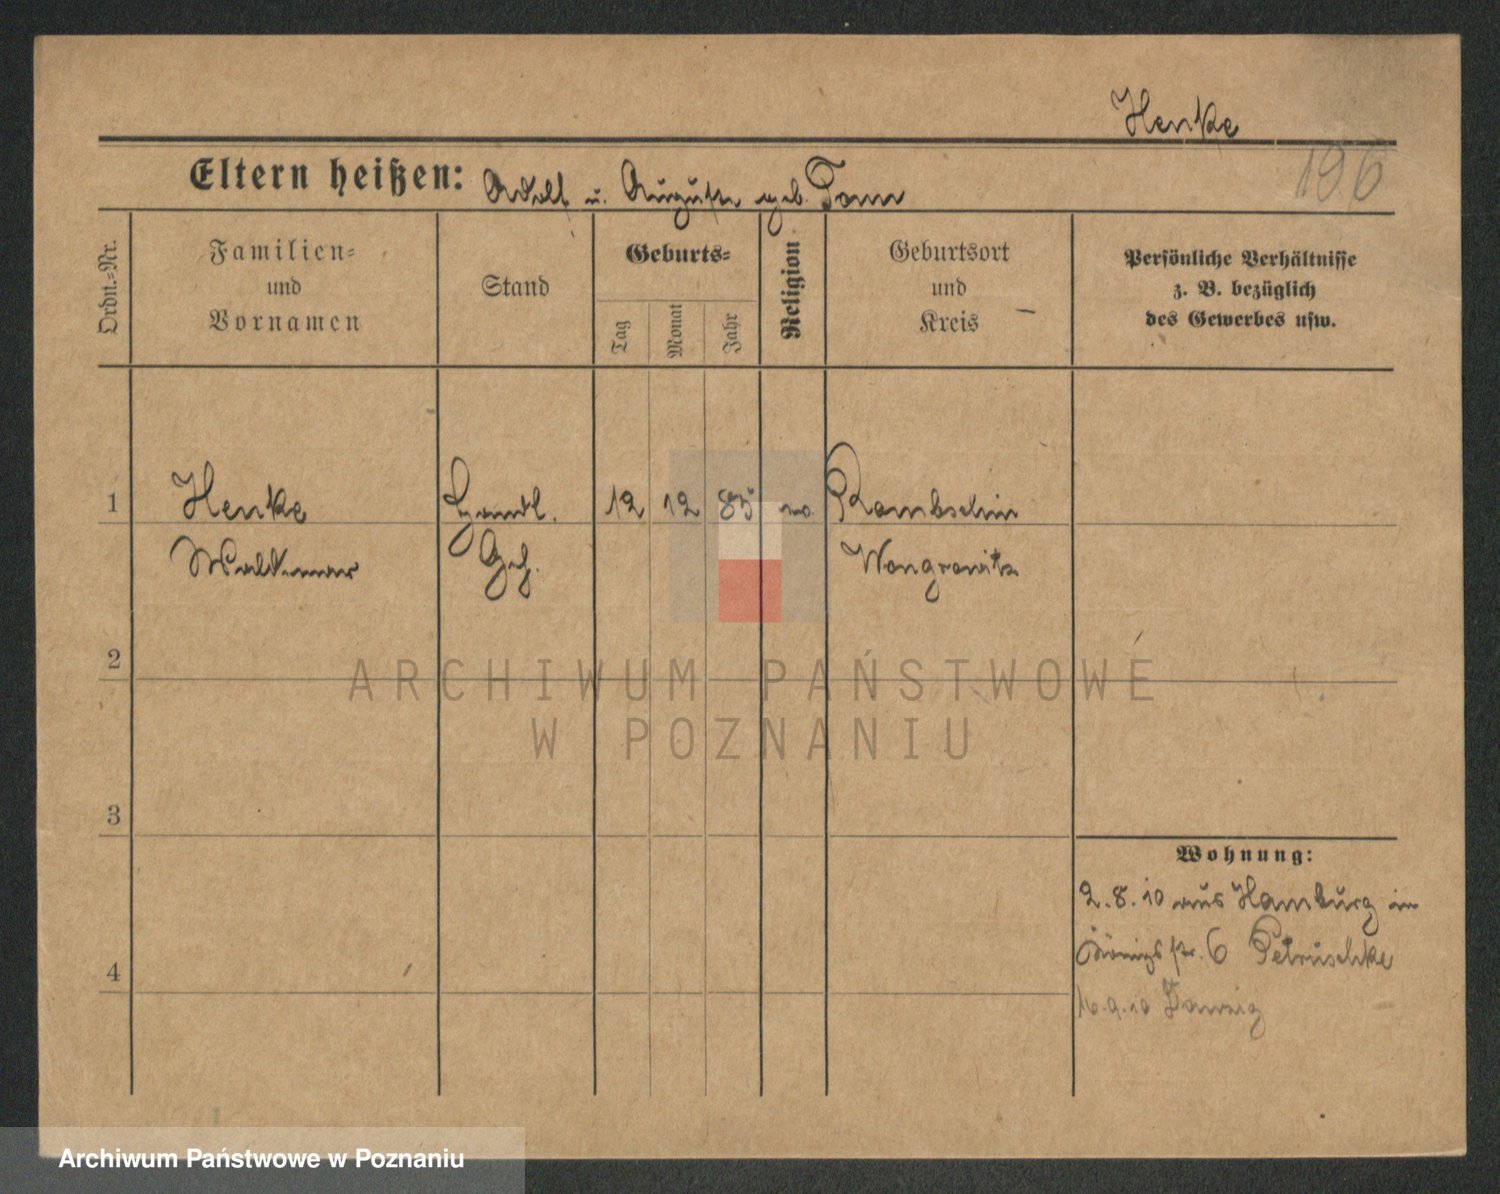 Henke
196
Eltern heißen: Adolf u. Auguste geb. Tonn
Ordn.-Nr.
Familien-
und
Vornamen
Stand
Geburts-
Tag
Monat
Jahr
Religion
Geburtsort
und
Kreis
Persönliche Verhältnisse
z. B. bezüglich
des Gewerbes usw.
1 Henke Handl. 12 12 85 Rombschin
Waldemar Geh. Wongrowitz
2
3
4
Wohnung:
2.8.10 aus Hamburg in
Königstr. 6 Petruschke
16.9.10 Danzig
ARCHIWUM PAŃSTWOWE
W POZNANIU
Archiwum Państwowe w Poznaniu